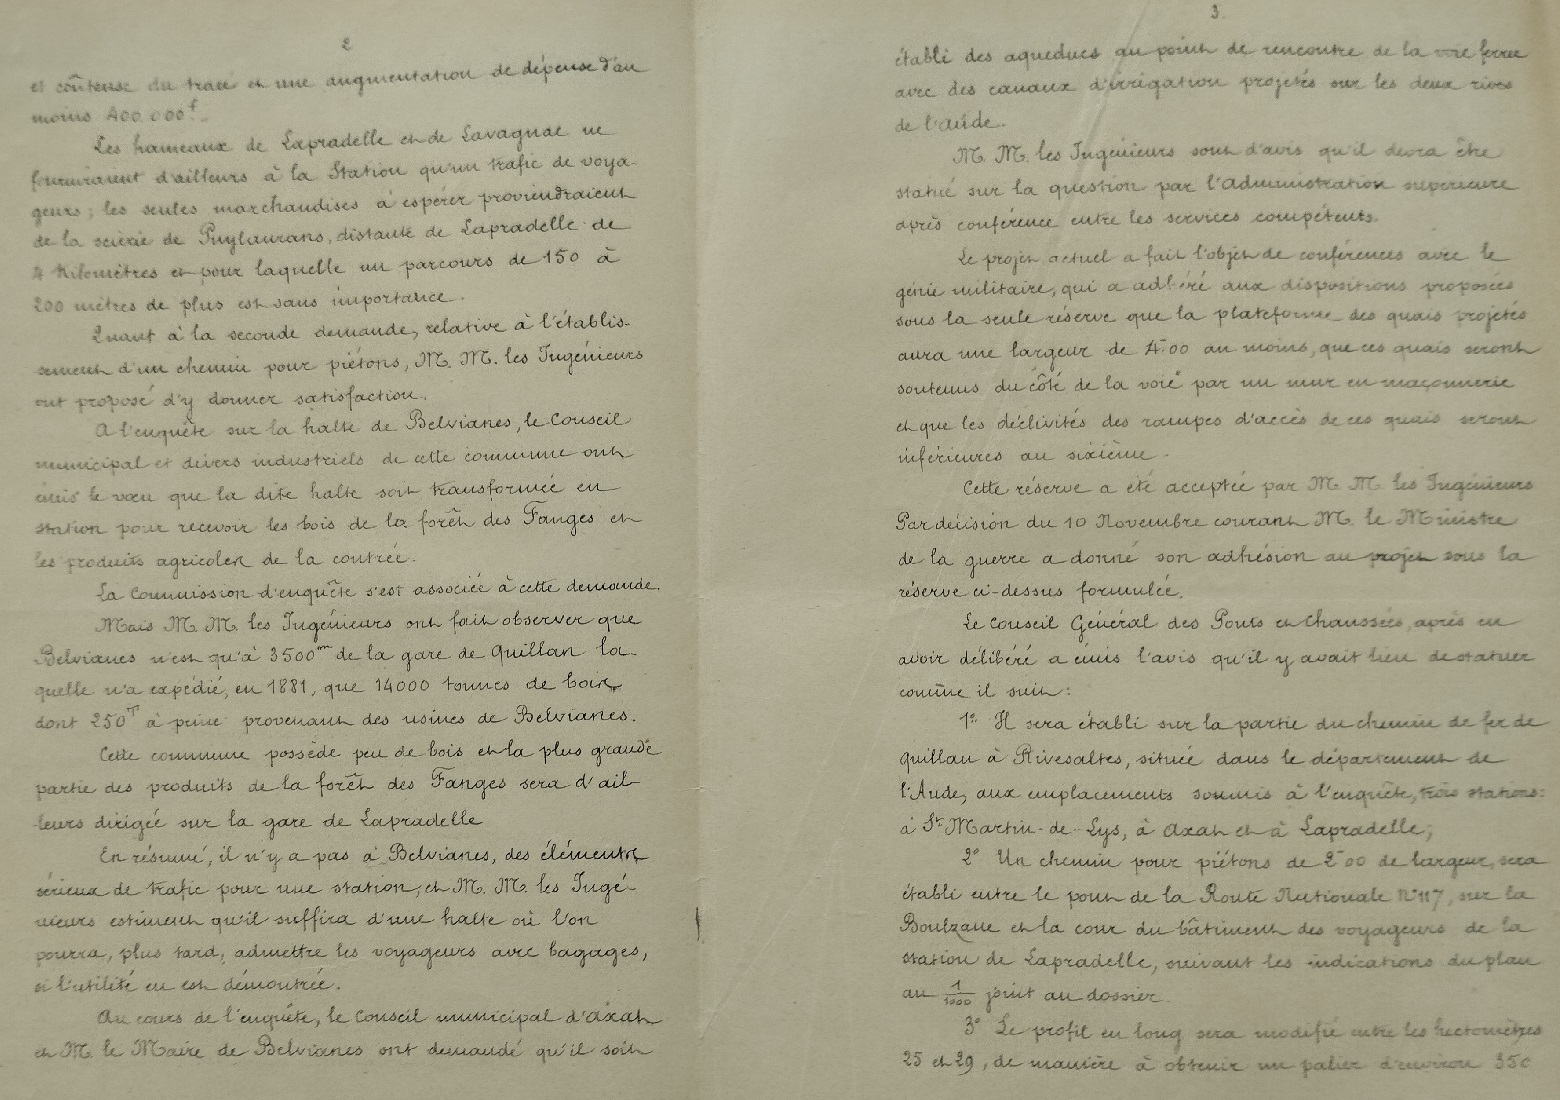 2
et coûteuse du tracé et une augmentation de dépense d'au
moins 400.000f.
Les hameaux de Lapradelle et de Lavagnac ne
fourniraient d'ailleurs à la Station qu'un trafic de voya-
geurs; les seules marchandises à espérer proviendraient
de la scierie de Puylaurans, distante de Lapradelle de
4 Kilomètres et pour laquelle un parcours de 150 à
200 mètres de plus est sans importance.
Quant à la seconde demande, relative à l'établis-
sement d'un chemin pour piétons, M. M. les Ingénieurs
ont proposé d'y donner satisfaction.
A l'enquête sur la halte de Belvianes, le Conseil
municipal et divers industriels de cette commune ont
émis le vœu que la dite halte soit transformée en
station pour recevoir les bois de la forêt des Fanges et
les produits agricoles de la contrée.
La Commission d'enquête s'est associée à cette demande.
Mais M. M. les Ingénieurs ont fait observer que
Belvianes n'est qu'à 3500m de la gare de Quillan la-
quelle n'a expédié, en 1881, que 14000 tonnes de bois,
dont 250T à peine provenant des usines de Belvianes.
Cette commune possède peu de bois et la plus grande
partie des produits de la forêt des Fanges sera d'ail-
leurs dirigée sur la gare de Lapradelle
En résumé, il n'y a pas à Belvianes, des éléments
sérieux de trafic pour une station, et M. M. les Ingé-
nieurs estiment qu'il suffira d'une halte où l'on
pourra, plus tard, admettre les voyageurs avec bagages,
si l'utilité en est démontrée.
Au cours de l'enquête, le Conseil municipal d'Axat
et M. le Maire de Belvianes ont demandé qu'il soit
3.
établi des aqueducs au point de rencontre de la voie ferrée
avec des canaux d'irrigation projetés sur les deux rives
de l'Aude.
M. M. les Ingénieurs sont d'avis qu'il devra être
statué sur la question par l'Administration supérieure
après conférence entre les services compétents.
Le projet actuel a fait l'objet de conférences avec le
génie militaire, qui a adhéré aux dispositions proposées
sous la seule réserve que la plateforme des quais projetés
aura une largeur de 4m00 au moins, que ces quais seront
soutenus du côté de la voie par un mur en maçonnerie
et que les déclivités des rampes d'accès de ces quais seront
inférieures au sixième.
Cette réserve a été acceptée par M. M. les Ingénieurs
Par décision du 10 Novembre courant M. le Ministre
de la guerre a donné son adhésion au projet sous la
réserve ci-dessus formulée.
Le Conseil Général des Ponts et Chaussées, après en
avoir délibéré a émis l'avis qu'il y avait lieu de statuer
comme il suit:
1° Il sera établi sur la partie du chemin de fer de
Quillan à Rivesaltes, située dans le département de
l'Aude, aux emplacements soumis à l'enquête, trois stations:
à St Martin-de-Lys, à Axat et à Lapradelle;
2° Un chemin pour piétons de 2m00 de largeur, sera
établi entre le pont de la Route Nationale N°117, sur la
Boulzane et la cour du bâtiment des voyageurs de la
station de Lapradelle, suivant les indications du plan
au 1/1000 joint au dossier.
3° Le profil en long sera modifié entre les hectomètres
25 et 29, de manière à obtenir un palier d'environ 350